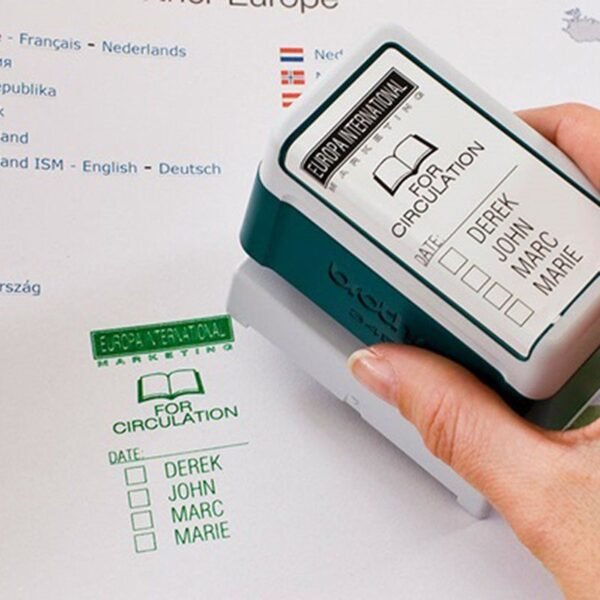 ther Europe
- Français - Nederlands
ия
epublika
and
and ISM - English - Deutsch
Ned
N
rszág
EUROPA INTERNATIONAL
MARKETING
FOR
CIRCULATION
DATE:
DEREK
JOHN
MARC
MARIE
EUROPA INTERNATIONAL
MARKETING
FOR
CIRCULATION
DATE:
DEREK
JOHN
MARC
MARIE